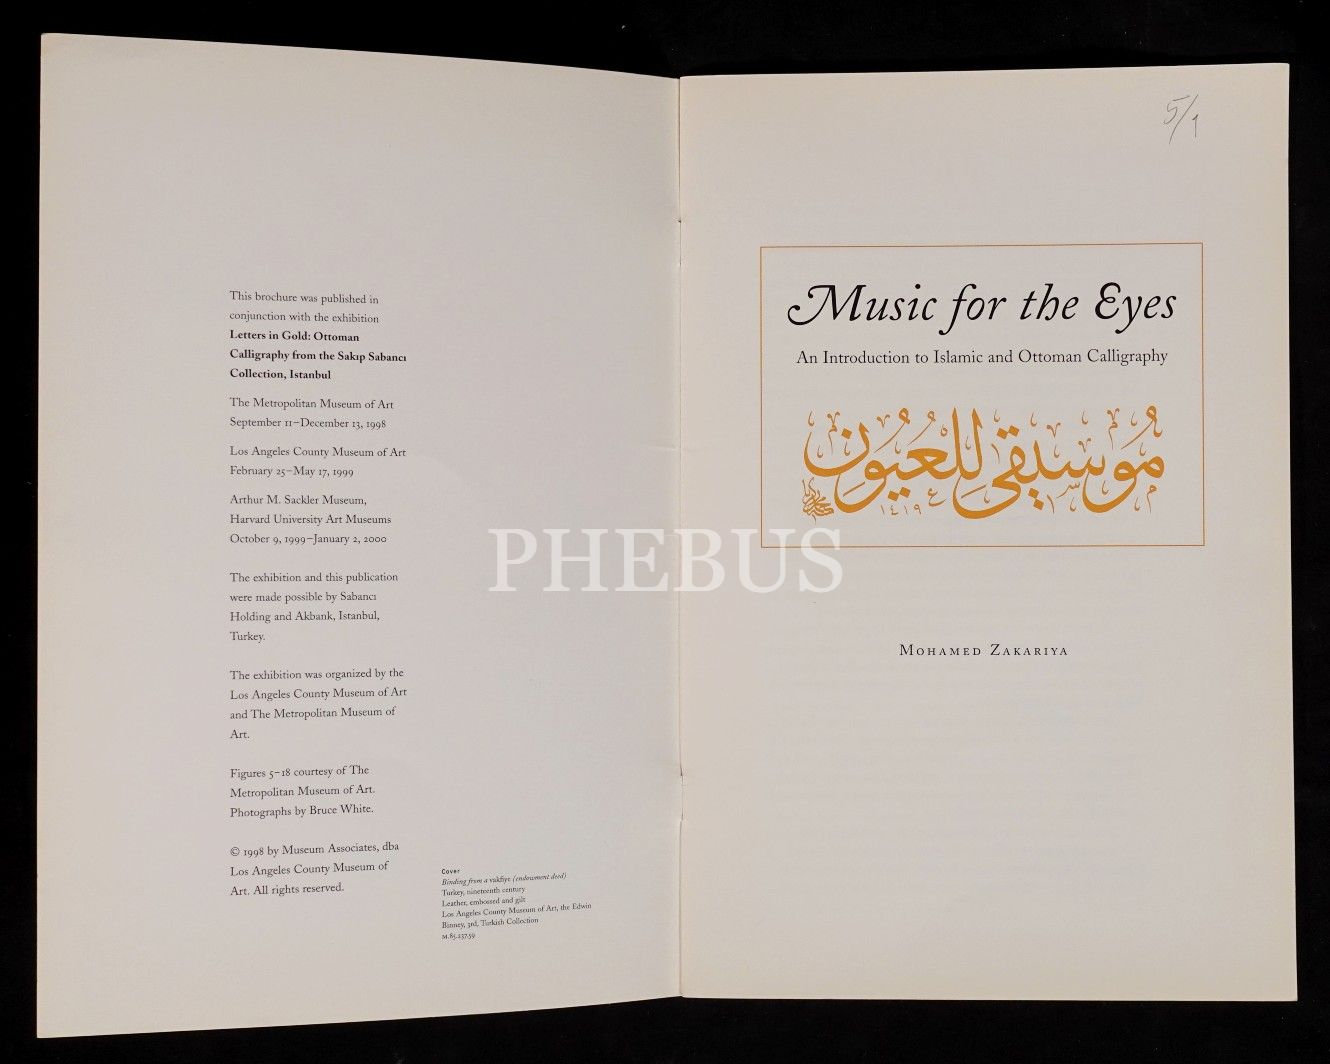 This brochure was published in
conjunction with the exhibition
Letters in Gold: Ottoman
Calligraphy from the Sakıp Sabancı
Collection, Istanbul
The Metropolitan Museum of Art
September 11–December 13, 1998
Los Angeles County Museum of Art
February 25–May 17, 1999
Arthur M. Sackler Museum,
Harvard University Art Museums
October 9, 1999–January 2, 2000
The exhibition and this publication
were made possible by Sabancı
Holding and Akbank, Istanbul,
Turkey.
The exhibition was organized by the
Los Angeles County Museum of Art
and The Metropolitan Museum of
Art.
Figures 5–18 courtesy of The
Metropolitan Museum of Art.
Photographs by Bruce White.
© 1998 by Museum Associates, dba
Los Angeles County Museum of
Art. All rights reserved.
Cover
Binding from a vakfiye (endowment deed)
Turkey, nineteenth century
Leather, embossed and gilt
Los Angeles County Museum of Art, the Edwin
Binney, 3rd, Turkish Collection
M.85.237.59
5/1
Music for the Eyes
An Introduction to Islamic and Ottoman Calligraphy
مُوسيقى للعُيُون
١٤١٩
MOHAMED ZAKARIYA
PHEBUS